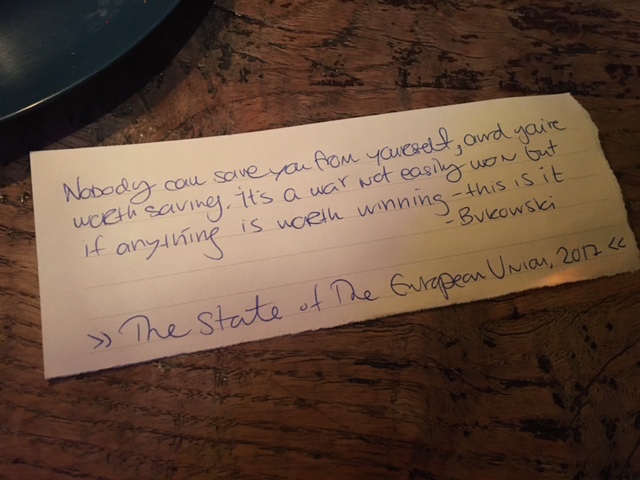 Nobody can save you from yourself, and you're
worth saving. it's a war not easily won but
if anything is worth winning - this is it
- Bukowski
>> The State of The European Union, 2017 <<